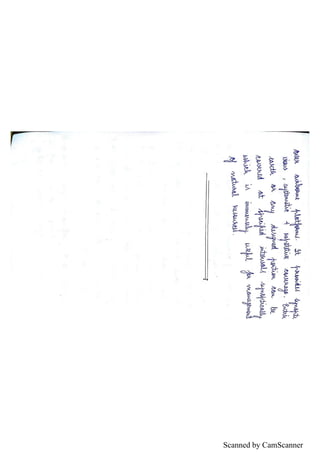 over airborne platforms. It provides synoptic
view, systematic + repetitive coverage. Entire
earth or any designed portion can be
covered at specified intervals synoptically
which is immensely useful for management
of natural resources.
Scanned by CamScanner